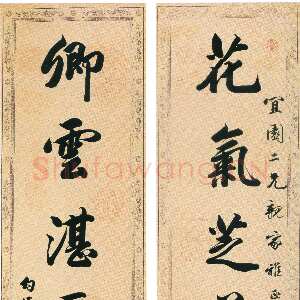 花氣芝
宜園二兄親家雅正
卿雲湛
Shufawang.CN